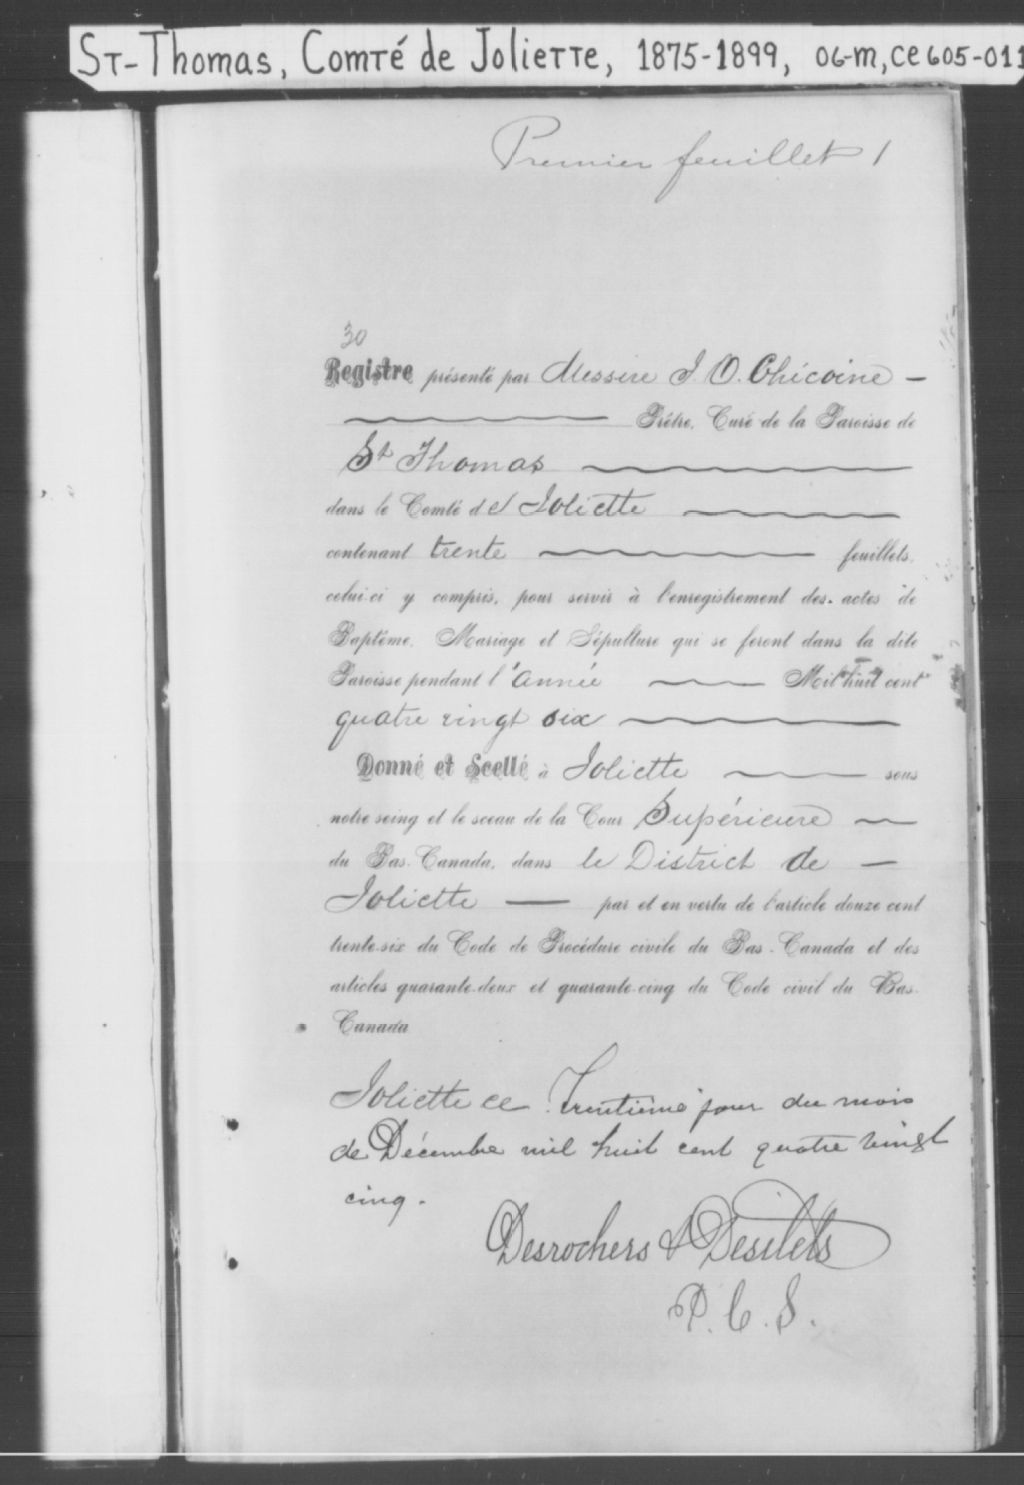 St-Thomas, Comté de Joliette, 1875-1899, 06-m, CE605-011
Premier feuillet 1
30
Registre présenté par Messire J. O. Chicoine —
Prêtre, Curé de la Paroisse de
St Thomas
dans le Comté de Joliette
contenant trente feuillets,
celui-ci y compris, pour servir à l'enregistrement des actes de
Baptême, Mariage et Sépulture qui se feront dans la dite
Paroisse pendant l'année Mil huit cent
quatre vingt six
Donné et Scellé à Joliette sous
notre seing et le sceau de la Cour Supérieure
du Bas-Canada, dans le District de —
Joliette — par et en vertu de l'article douze cent
trente-six du Code de Procédure civile du Bas-Canada et des
articles quarante-deux et quarante-cinq du Code civil du Bas-
Canada
Joliette ce Trentième jour du mois
de Décembre mil huit cent quatre vingt
cinq.
Desrochers & Desilets
P. C. S.